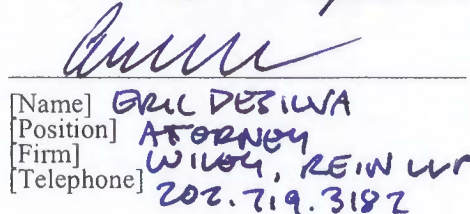 [Name] ERIC DESILVA
[Position] ATTORNEY
[Firm] WILEY, REIN LLP
[Telephone] 202.719.3182